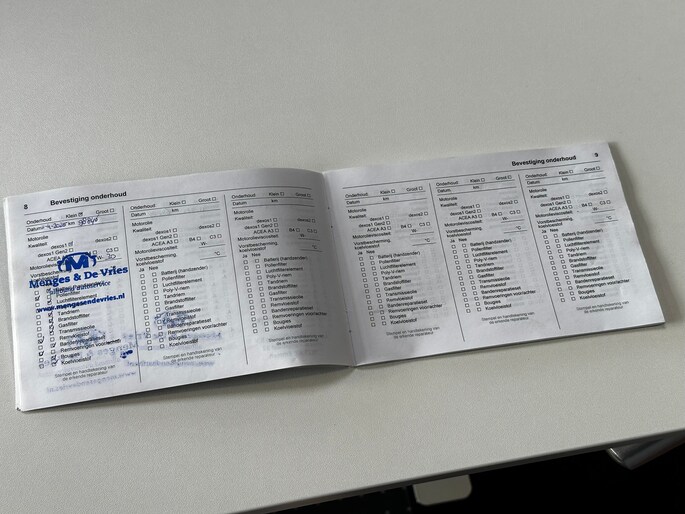 8 Bevestiging onderhoud
Onderhoud: Klein Groot
Datum: km
Motorolie
Kwaliteit
dexos1 dexos2
dexos1 Gen2
ACEA A3 C3
Motorolieviscositeit W- 30
Vorstbescherming,
M
Menges & De Vries
allround autoservice
www.mengesendevries.nl
Pollenfilter
Tandriem
Brandstoffilter
Gasfilter
Transmissieolie
Remvloeistof
Bandenreparatieset
Remvoeringen voor/achter
Bougies
Koelvloeistof
Stempel en handtekening van
de erkende reparateur
Onderhoud: Klein Groot
Datum km
Motorolie
Kwaliteit
dexos1 dexos2
dexos1 Gen2
ACEA A3 B4 C3
Motorolieviscositeit -W-
Vorstbescherming,
koelvloeistof °C
Ja Nee
Batterij (handzender)
Pollenfilter
Luchtfilterelement
Poly V-riem
Tandriem
Brandstoffilter
Gasfilter
Transmissieolie
Remvloeistof
Bandenreparatieset
Remvoeringen voor/achter
Bougies
Koelvloeistof
Stempel en handtekening van
de erkende reparateur
Onderhoud: Klein Groot
Datum km
Motorolie
Kwaliteit
dexos1 dexos2
dexos1 Gen2
ACEA A3 B4 C3
Motorolieviscositeit -W-
Vorstbescherming,
koelvloeistof °C
Ja Nee
Batterij (handzender)
Pollenfilter
Luchtfilterelement
Poly V-riem
Tandriem
Brandstoffilter
Gasfilter
Transmissieolie
Remvloeistof
Bandenreparatieset
Remvoeringen voor/achter
Bougies
Koelvloeistof
Stempel en handtekening van
de erkende reparateur
Bevestiging onderhoud 9
Onderhoud: Klein Groot
Datum km
Motorolie
Kwaliteit
dexos1 dexos2
dexos1 Gen2
ACEA A3 B4 C3
Motorolieviscositeit -W-
Vorstbescherming,
koelvloeistof °C
Ja Nee
Batterij (handzender)
Pollenfilter
Luchtfilterelement
Poly V-riem
Tandriem
Brandstoffilter
Gasfilter
Transmissieolie
Remvloeistof
Bandenreparatieset
Remvoeringen voor/achter
Bougies
Koelvloeistof
Stempel en handtekening van
de erkende reparateur
Onderhoud: Klein Groot
Datum km
Motorolie
Kwaliteit
dexos1 dexos2
dexos1 Gen2
ACEA A3 B4 C3
Motorolieviscositeit -W-
Vorstbescherming,
koelvloeistof °C
Ja Nee
Batterij (handzender)
Pollenfilter
Luchtfilterelement
Poly V-riem
Tandriem
Brandstoffilter
Gasfilter
Transmissieolie
Remvloeistof
Bandenreparatieset
Remvoeringen voor/achter
Bougies
Koelvloeistof
Stempel en handtekening van
de erkende reparateur
Onderhoud: Klein Groot
Datum km
Motorolie
Kwaliteit
dexos1 dexos2
dexos1 Gen2
ACEA A3 B4 C3
Motorolieviscositeit -W-
Vorstbescherming,
koelvloeistof °C
Ja Nee
Batterij (handzender)
Pollenfilter
Luchtfilterelement
Poly V-riem
Tandriem
Brandstoffilter
Gasfilter
Transmissieolie
Remvloeistof
Bandenreparatieset
Remvoeringen voor/achter
Bougies
Koelvloeistof
Stempel en handtekening van
de erkende reparateur